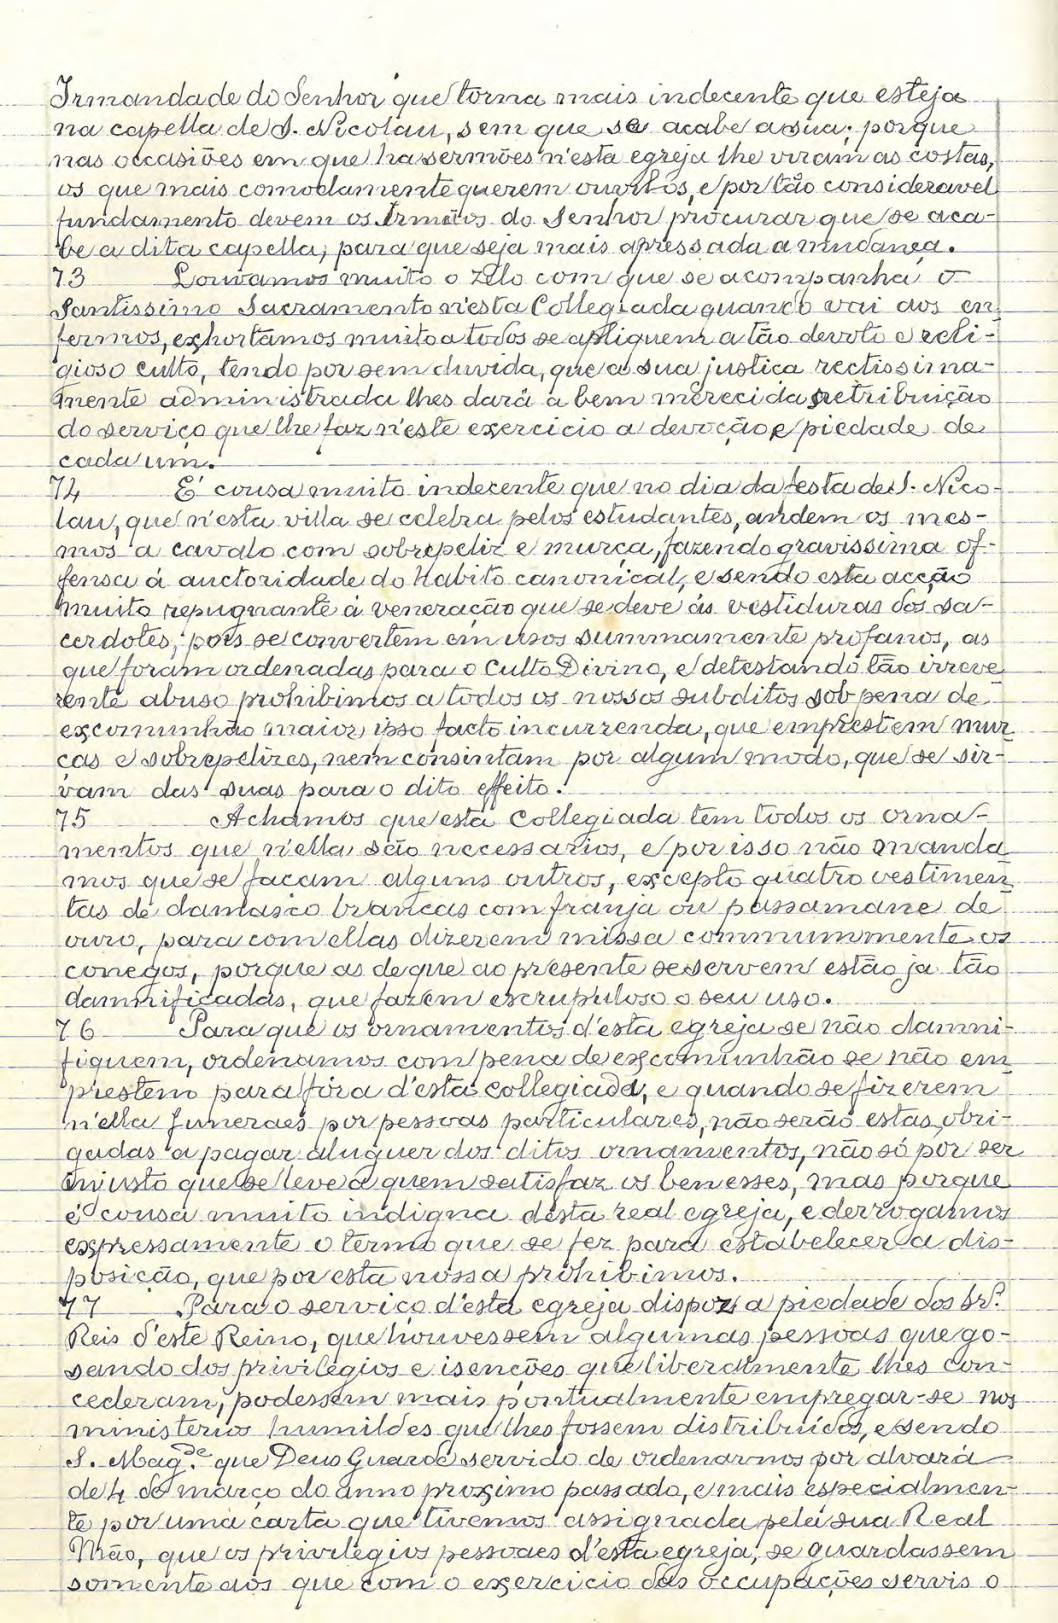 Irmandade do Senhor que torna mais indecente que esteja
na capella de S. Nicolau, sem que se acabe a sua; porque
nas occasiões em que ha sermões n'esta egreja lhe viram as costas,
os que mais comodamente querem ouvil-os, e por tão consideravel
fundamento devem os Irmãos do Senhor procurar que se aca-
be a dita capella, para que seja mais apressada a mudança.
73 Louvamos muito o zelo com que se acompanha o
Santissimo Sacramento n'esta Collegiada quando vai aos en
fermos, exhortamos muito a todos se appliquem a tão devoto e reli-
gioso culto, tendo por sem duvida, que a sua justiça rectissima-
mente administrada lhes dará a bem merecida retribuição
do serviço que lhe faz n'este exercicio a devoção e piedade de
cada um.
74 É cousa muito indecente que no dia da festa de S. Nico-
lau, que n'esta villa se celebra pelos estudantes, andem os mes-
mos a cavalo com sobrepeliz e murça, fazendo gravissima of-
fensa á auctoridade do habito canonical, e sendo esta acção
muito repugnante á veneração que se deve ás vestiduras dos sa-
cerdotes, pois se convertem em usos summamente profanos, as
que foram ordenadas para o Culto Divino, e detestando tão irreve
rente abuso prohibimos a todos os nossos subditos sob pena de
excomunhão maior, ipso facto incurrenda, que emprestem mur
ças e sobrepelizes, nem consintam por algum modo, que se sir-
vam das suas para o dito effeito.
75 Achamos que esta Collegiada tem todos os orna-
mentos que n'ella são necessarios, e por isso não manda
mos que se façam alguns outros, excepto quatro vestimen
tas de damasco brancas com franja ou passamane de
ouro, para com ellas dizerem missa commummente os
conegos, porque as de que ao presente se servem estão ja tão
damnificadas, que fazem escrupuloso o seu uso.
76 Para que os ornamentos d'esta egreja se não damni-
fiquem, ordenamos com pena de excomunhão se não em
prestem para fóra d'esta collegiada, e quando se fizerem
n'ella funeraes por pessoas particulares, não serão estas obri-
gadas a pagar aluguer dos ditos ornamentos, não só por ser
injusto que se leve a quem satisfaz os benesses, mas porque
é cousa muito indigna desta real egreja, e derrogamos
expressamente o termo que se fez para estabelecer a dis-
posição, que por esta nossa prohibimos.
77 Para o serviço d'esta egreja dispoz a piedade dos Srs.
Reis d'este Reino, que houvessem algumas pessoas que go-
sando dos privilegios e isenções que liberalmente lhes con-
cederam, podessem mais pontualmente empregar-se nos
ministerios humildes que lhes fossem distribuidos, e sendo
S. Magde. que Deus Guarde servido de ordenarnos por alvará
de 4 de março do anno proximo passado, e mais especialmen-
te por uma carta que tivemos assignada pela sua Real
Mão, que os privilegios pessoaes d'esta egreja, se guardassem
somente aos que com o exercicio das occupações servis o